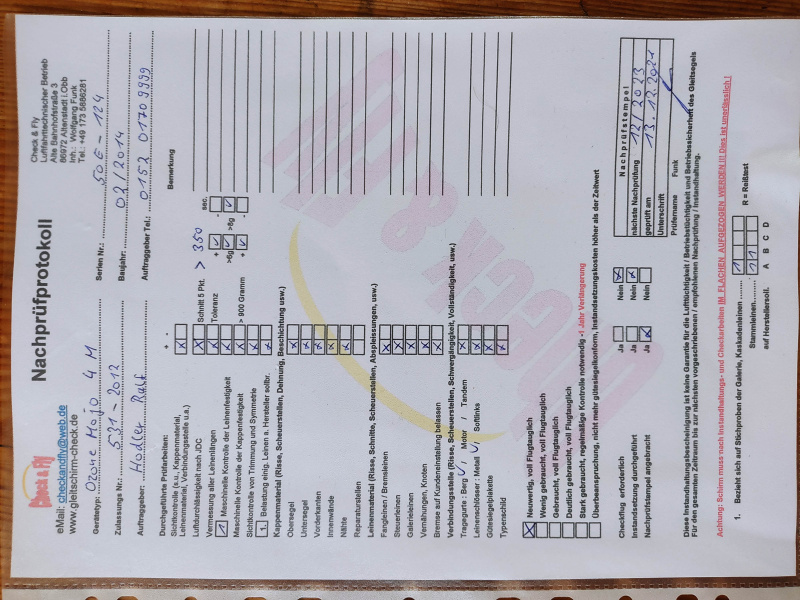 Check & Fly
Nachprüfprotokoll
Check & Fly
Luftfahrttechnischer Betrieb
Alte Bahnhofstraße 3
86972 Altenstadt i.Obb
Inh.: Wolfgang Funk
Tel.: +49 173 5686281
eMail: checkandfly@web.de
www.gleitschirm-check.de
Gerätetyp: Ozone Mojo 4 M Serien Nr.: 50E - 124
Zulassungs Nr.: 531 - 2012 Baujahr: 02/2014
Auftraggeber: Ralf Auftraggeber Tel.: 0152 01709999
Durchgeführte Prüfarbeiten: + - Bemerkung
Sichtkontrolle (s.u., Kappenmaterial,
Leinenmaterial, Verbindungsteile u.a.) x
Luftdurchlässigkeit nach JDC x Schnitt 5 Pkt. > 350 sec.
Vermessung aller Leinenlängen x Toleranz + -
Maschinelle Kontrolle der Leinenfestigkeit x >6g >8g
Maschinelle Kontrolle der Kappenfestigkeit x > 900 Gramm + -
Sichtkontrolle von Trimmung und Symmetrie x
1. Belastung einig. Leinen a. Hersteller sollbr. x
Kappenmaterial (Risse, Scheuerstellen, Dehnung, Beschichtung usw.)
Obersegel x
Untersegel x
Vorderkanten x
Innenwände x
Nähte x
Reparaturstellen
Leinenmaterial (Risse, Schnitte, Scheuerstellen, Abspleissungen, usw.)
Fangleinen / Bremsleinen x
Steuerleinen x
Galerieleinen x
Vernähungen, Knoten x
Bremse auf Kundeneinstellung belassen x
Verbindungsteile (Risse, Scheuerstellen, Schwergängigkeit, Vollständigkeit, usw.)
Tragegurte - Berg √ / Motor / Tandem x
Leinenschlösser : Metall √ / Softlinks x
Gütesiegelplakette x
Typenschild x
x Neuwertig, voll Flugtauglich
Wenig gebraucht, voll Flugtauglich
Gebraucht, voll Flugtauglich
Deutlich gebraucht, voll Flugtauglich
Stark gebraucht, regelmäßige Kontrolle notwendig =1 Jahr Verlängerung
Überbeanspruchung, nicht mehr gütesiegelkonform, Instandsetzungskosten höher als der Zeitwert
Checkflug erforderlich Ja Nein x
Instandsetzung durchgeführt Ja Nein x
Nachprüfstempel angebracht Ja x Nein
Nachprüfstempel
nächste Nachprüfung 12/2023
geprüft am 13.12.2021
Unterschrift
Prüfername Funk
Diese Instandhaltungsbescheinigung ist keine Garantie für die Lufttüchtigkeit / Betriebstüchtigkeit und Betriebssicherheit des Gleitsegels
Für den gesamten Zeitraum bis zur nächsten vorgeschriebenen / empfohlenen Nachprüfung / Instandhaltung.
Achtung: Schirm muss nach Instandhaltungs- und Checkarbeiten IM FLACHEN AUFGEZOGEN WERDEN !!! Dies ist unerlässlich !
1. Bezieht sich auf Stichproben der Galerie, Kaskadenleinen 1
Stammleinen 1 1 R = Reißtest
auf Herstellersoll. A B C D